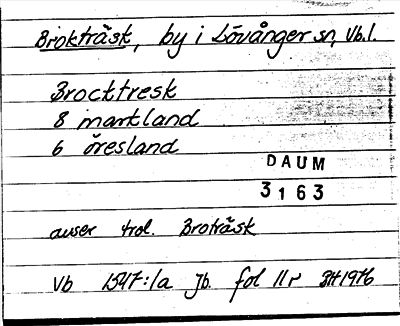 Brokträsk, by i Lövånger sn, Vb.l.
Brocktresk
8 markland
6 öresland
DAUM
3163
avser trol. Broträsk
Vb 1547:1a Jb. fol 11r BH1976